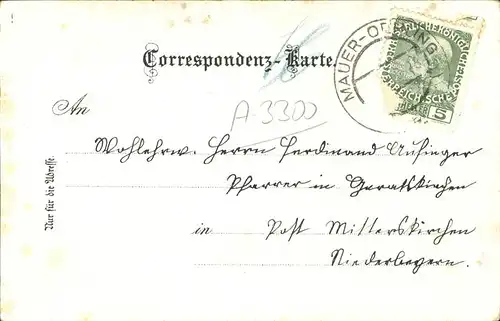 Correspondenz-Karte.
MAUER-OEHLING
KAISERLICHE KÖNIGLICHE
ÖSTERREICHISCHE POST
5
HELLER
A.3300
An
Wohlehrw. Herrn Ferdinand
Pfarrer in Geratskirchen
in Post Mitterskirchen
Niederbayern.
Nur für die Adresse.